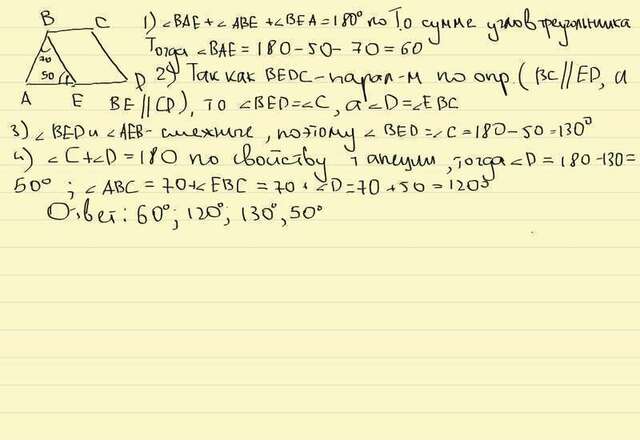 B C 1) ∠BAE+∠ABE+∠BEA=180° по Т.о сумме углов треугольника
70 Тогда ∠BAE=180-50-70=60
50 2) Так как BEDC-парал-м по опр. (BC//ED, и
A E D BE//CD), то ∠BED=∠C, а ∠D=∠EBC
3) ∠BED и ∠AEB-смежные, поэтому ∠BED=∠C=180-50=130°
4) ∠C+∠D=180 по свойству трапеции, тогда ∠D=180-130=
50°; ∠ABC=70+∠EBC=70+∠D=70+50=120°
Ответ: 60°; 120°; 130°, 50°